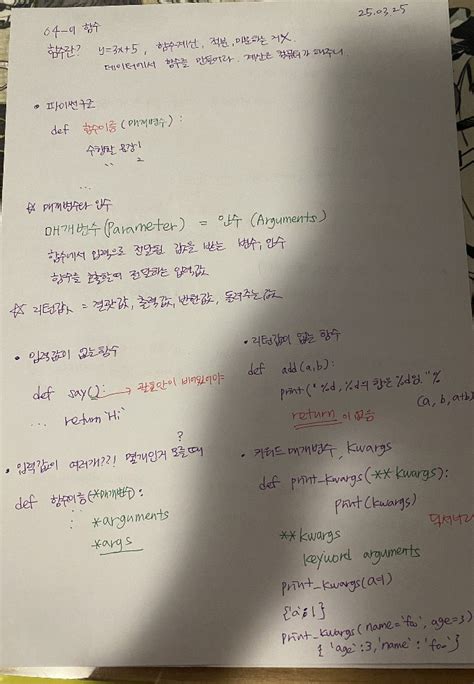 25.03.25
04-1 함수
함수란? y=3x+5, 함수계산, 적분, 미분하는 거X.
데이터에서 함수를 만들어라. 계산은 컴퓨터가 해주니
• 파이썬구조
def 함수이름(매개변수):
수행할 문장1
〃 2
...
☆ 매개변수와 인수
매개변수(Parameter) = 인수 (Arguments)
함수에서 입력으로 전달된 값을 받는 변수, 인수
함수를 호출할때 전달하는 입력값
☆ 리턴값 = 결괏값, 출력값, 반환값, 돌려주는 값
• 입력값이 없는 함수
def say():
→ 괄호안이 비어있어야
... return 'Hi'
• 리턴값이 없는 함수
def add(a,b):
print("%d, %d의 합은 %d임."%
(a, b, a+b)
return 이 없음
?
• 입력값이 여러개??! 몇개인지 모를 때
def 함수이름(*매개변수):
*arguments
*args
• 키워드 매개변수, kwargs
def print_kwargs(**kwargs):
print(kwargs)
딕셔너리
**kwargs
keyword arguments
print_kwargs(a=1)
{'a':1}
print_kwargs(name='foo', age=3)
{'age':3, 'name':'foo'}